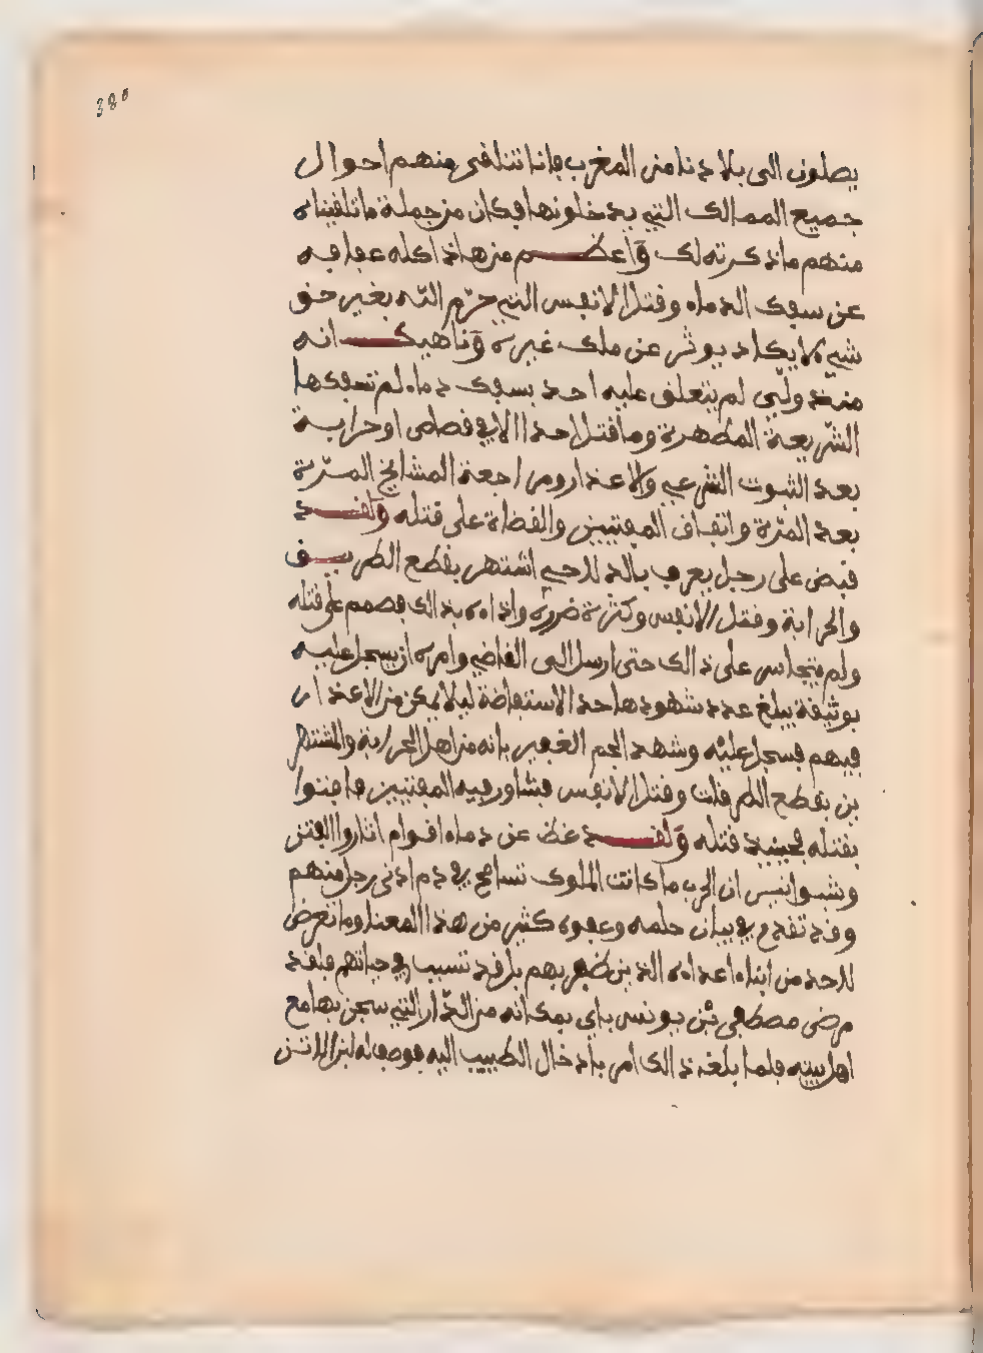 380
يصلون الى بلادنا من المغرب فاننا نتلقى منهم احوال
جميع الممالك التي يدخلونها فكان من جملة ما تلقيناه
منهم ما ذكرته لك وَاعظم من هاذا كله عفافه
عن سفك الدماء وقتل الانفس التي حرّم اللّه بغير حق
شيء لا يكاد يوثر عن ملك غيره وَناهيك انه
منذ ولّي لم يتعلق عليه احد بسفك دماء لم تسفكها
الشّريعة المطهرة وما قتل احدا الا في قصاص او حرابة
بعد الثبوت الشرعي والاعذار ومراجعة المشايخ المرّة
بعد المرّة واتفاق المفتيين والقضاة على قتله وَلقد
قبض على رجل يعرف بالدلاجي اشتهر بقطع الطريق
والحرابة وقتل الانفس وكثرة ضرره واذاه بذالك فصمم على قتله
ولم يتجاسر على ذالك حتى ارسل الى القاضي وامره ان يسجل عليه
بوثيقة يبلغ عدد شهودها حد الاستفاضة ليلا يمكن من الاعذار
فيهم فسجل عليْه وشهد الجم الغفير بانه من اهل الحرابة والمشتهر
ين بقطع الطرقات وقتل الانفس فشاور فيه المفتيين فافتوا
بقتله فحينيذ قتله وَلقد غض عن دماء اقوام اثاروا الفتن
وشبوا نيران الحرب ما كانت الملوك تسامح في دم ادنى رجل منهم
وقد تقدم في بيان حلمه وعفوه كثير من هذا المعنا وما تعرض
لاحد من ابناء اعداءه الذين ظفر بهم بل قد تسبب في حياتهم فلقد
مرض مصطفى بْن يونس باي بمكانه من الدّار التي سجن بها مع
اهل بيته فلما بلغه ذالك امر بادخال الطبيب اليه فوصف له لبن الاتن